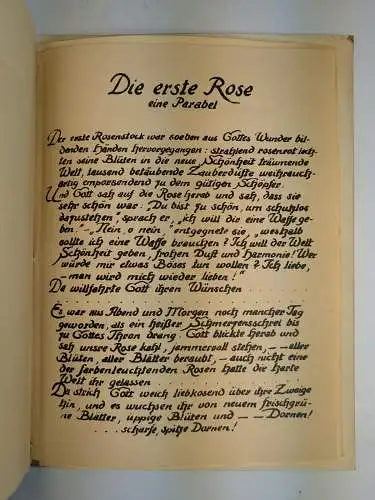 Die erste Rose
eine Parabel
Der erste Rosenstock war soeben aus Gottes Wunder bil-
denden Händen hervorgegangen: strahlend rosenrot lach-
ten seine Blüten in die neue, Schönheit träumende
Welt, tausend betäubende Zauberdüfte weihrauch-
artig emporsendend zu dem gütigen Schöpfer.
Und Gott sah auf die Rose herab und sah, dass sie
sehr schön war: „Du bist zu schön, um schutzlos
dazustehen", sprach er, „ich will dir eine Waffe ge-
ben" – „Nein, o nein," entgegnete sie, „weshalb
sollte ich eine Waffe brauchen? Ich will der Welt
Schönheit geben, frohen Duft und Harmonie! Wer
würde mir etwas Böses tun wollen? Ich liebe,
– man wird mich wieder lieben!"
Da willfahrte Gott ihren Wünschen
Es war aus Abend und Morgen noch mancher Tag
geworden, als ein heißer Schmerzensschrei bis
zu Gottes Thron drang. Gott blickte herab und
sah unsre Rose kahl, jammervoll stehen, – aller
Blüten, aller Blätter beraubt, – auch nicht eine
der farbenleuchtenden Rosen hatte die harte
Welt ihr gelassen
Da strich Gott weich liebkosend über ihre Zweige
hin, und es wuchsen ihr von neuem frischgrü-
ne Blätter, üppige Blüten und – – Dornen!
. . . scharfe, spitze Dornen!